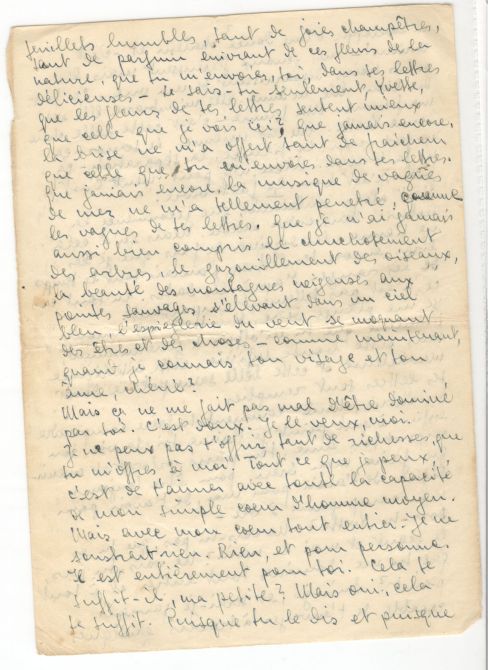 feuillets humbles, tant de joies champêtres,
tant de parfum enivrant de ces fleurs de la
nature, que tu m'envoies, toi, dans tes lettres
délicieuses – le sais-tu seulement, Yvette,
que les fleurs de tes lettres sentent mieux
que celle que je vois ici? Que jamais encore,
la brise ne m'a offert tant de fraicheur
que celle que tu m'envoies dans tes lettres.
Que jamais encore, la musique de vagues
de mer ne m'a tellement penetré, comme
les vagues de tes lettres. Que je n'ai jamais
aussi bien compris le chuchotement
des arbres, le gazouillement des oiseaux,
la beauté des montagnes neigeuses aux
pointes sauvages s'élevant dans un ciel
bleu, l'espièglerie du vent se moquant
des êtres et des choses – comme maintenant,
quand je connais ton visage et ton
âme, chérie?
Mais ça ne me fait pas mal d'être dominé
par toi. C'est doux. Je le veux, moi.
Je ne peux pas t'offrir, tant de richesses, que
tu m'offres à moi. Tout ce que je peux,
c'est de t'aimer avec toute la capacité
de mon simple coeur d'homme moyen.
Mais, avec mon coeur tout entier. Je ne
soustrait rien. Rien, et pour personne.
Il est entièrement pour toi. Cela te
suffit-il, ma petite? Mais oui, cela
te suffit. Puisque tu le dis et puisque